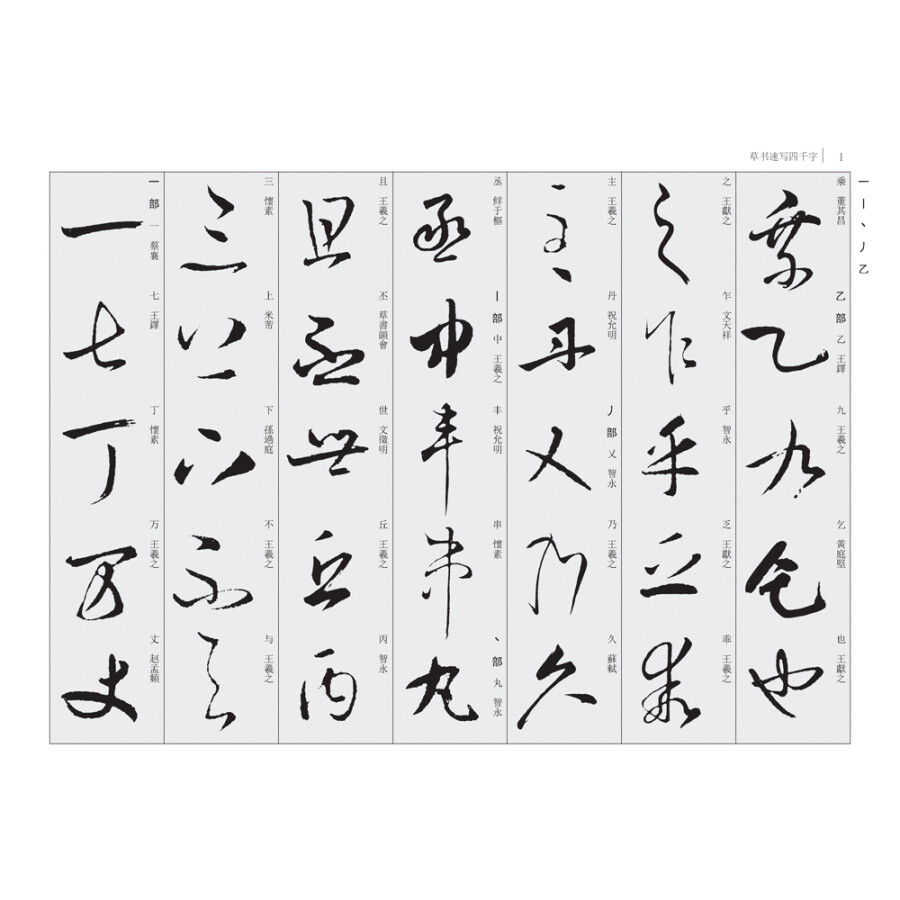 草书速写四千字 1
一丨丶丿乙
一部 一 蔡襄
一
七 王鐸
七
丁 懷素
丁
万 王羲之
万
丈 赵孟頫
丈
三 懷素
三
上 米芾
上
下 孫過庭
下
不 王羲之
不
与 王羲之
与
且 王羲之
且
丕 草書韻會
丕
世 文徵明
世
丘 王羲之
丘
丙 智永
丙
丞 鲜于樞
丞
丨部 中 王羲之
中
丰 祝允明
丰
串 懷素
串
丶部 丸 智永
丸
主 王羲之
主
丹 祝允明
丹
丿部 乂 智永
乂
乃 王羲之
乃
久 蘇軾
久
之 王獻之
之
乍 文天祥
乍
乎 智永
乎
乏 王獻之
乏
乖 王羲之
乖
乘 董其昌
乘
乙部 乙 王鐸
乙
九 王羲之
九
乞 黃庭堅
乞
也 王獻之
也